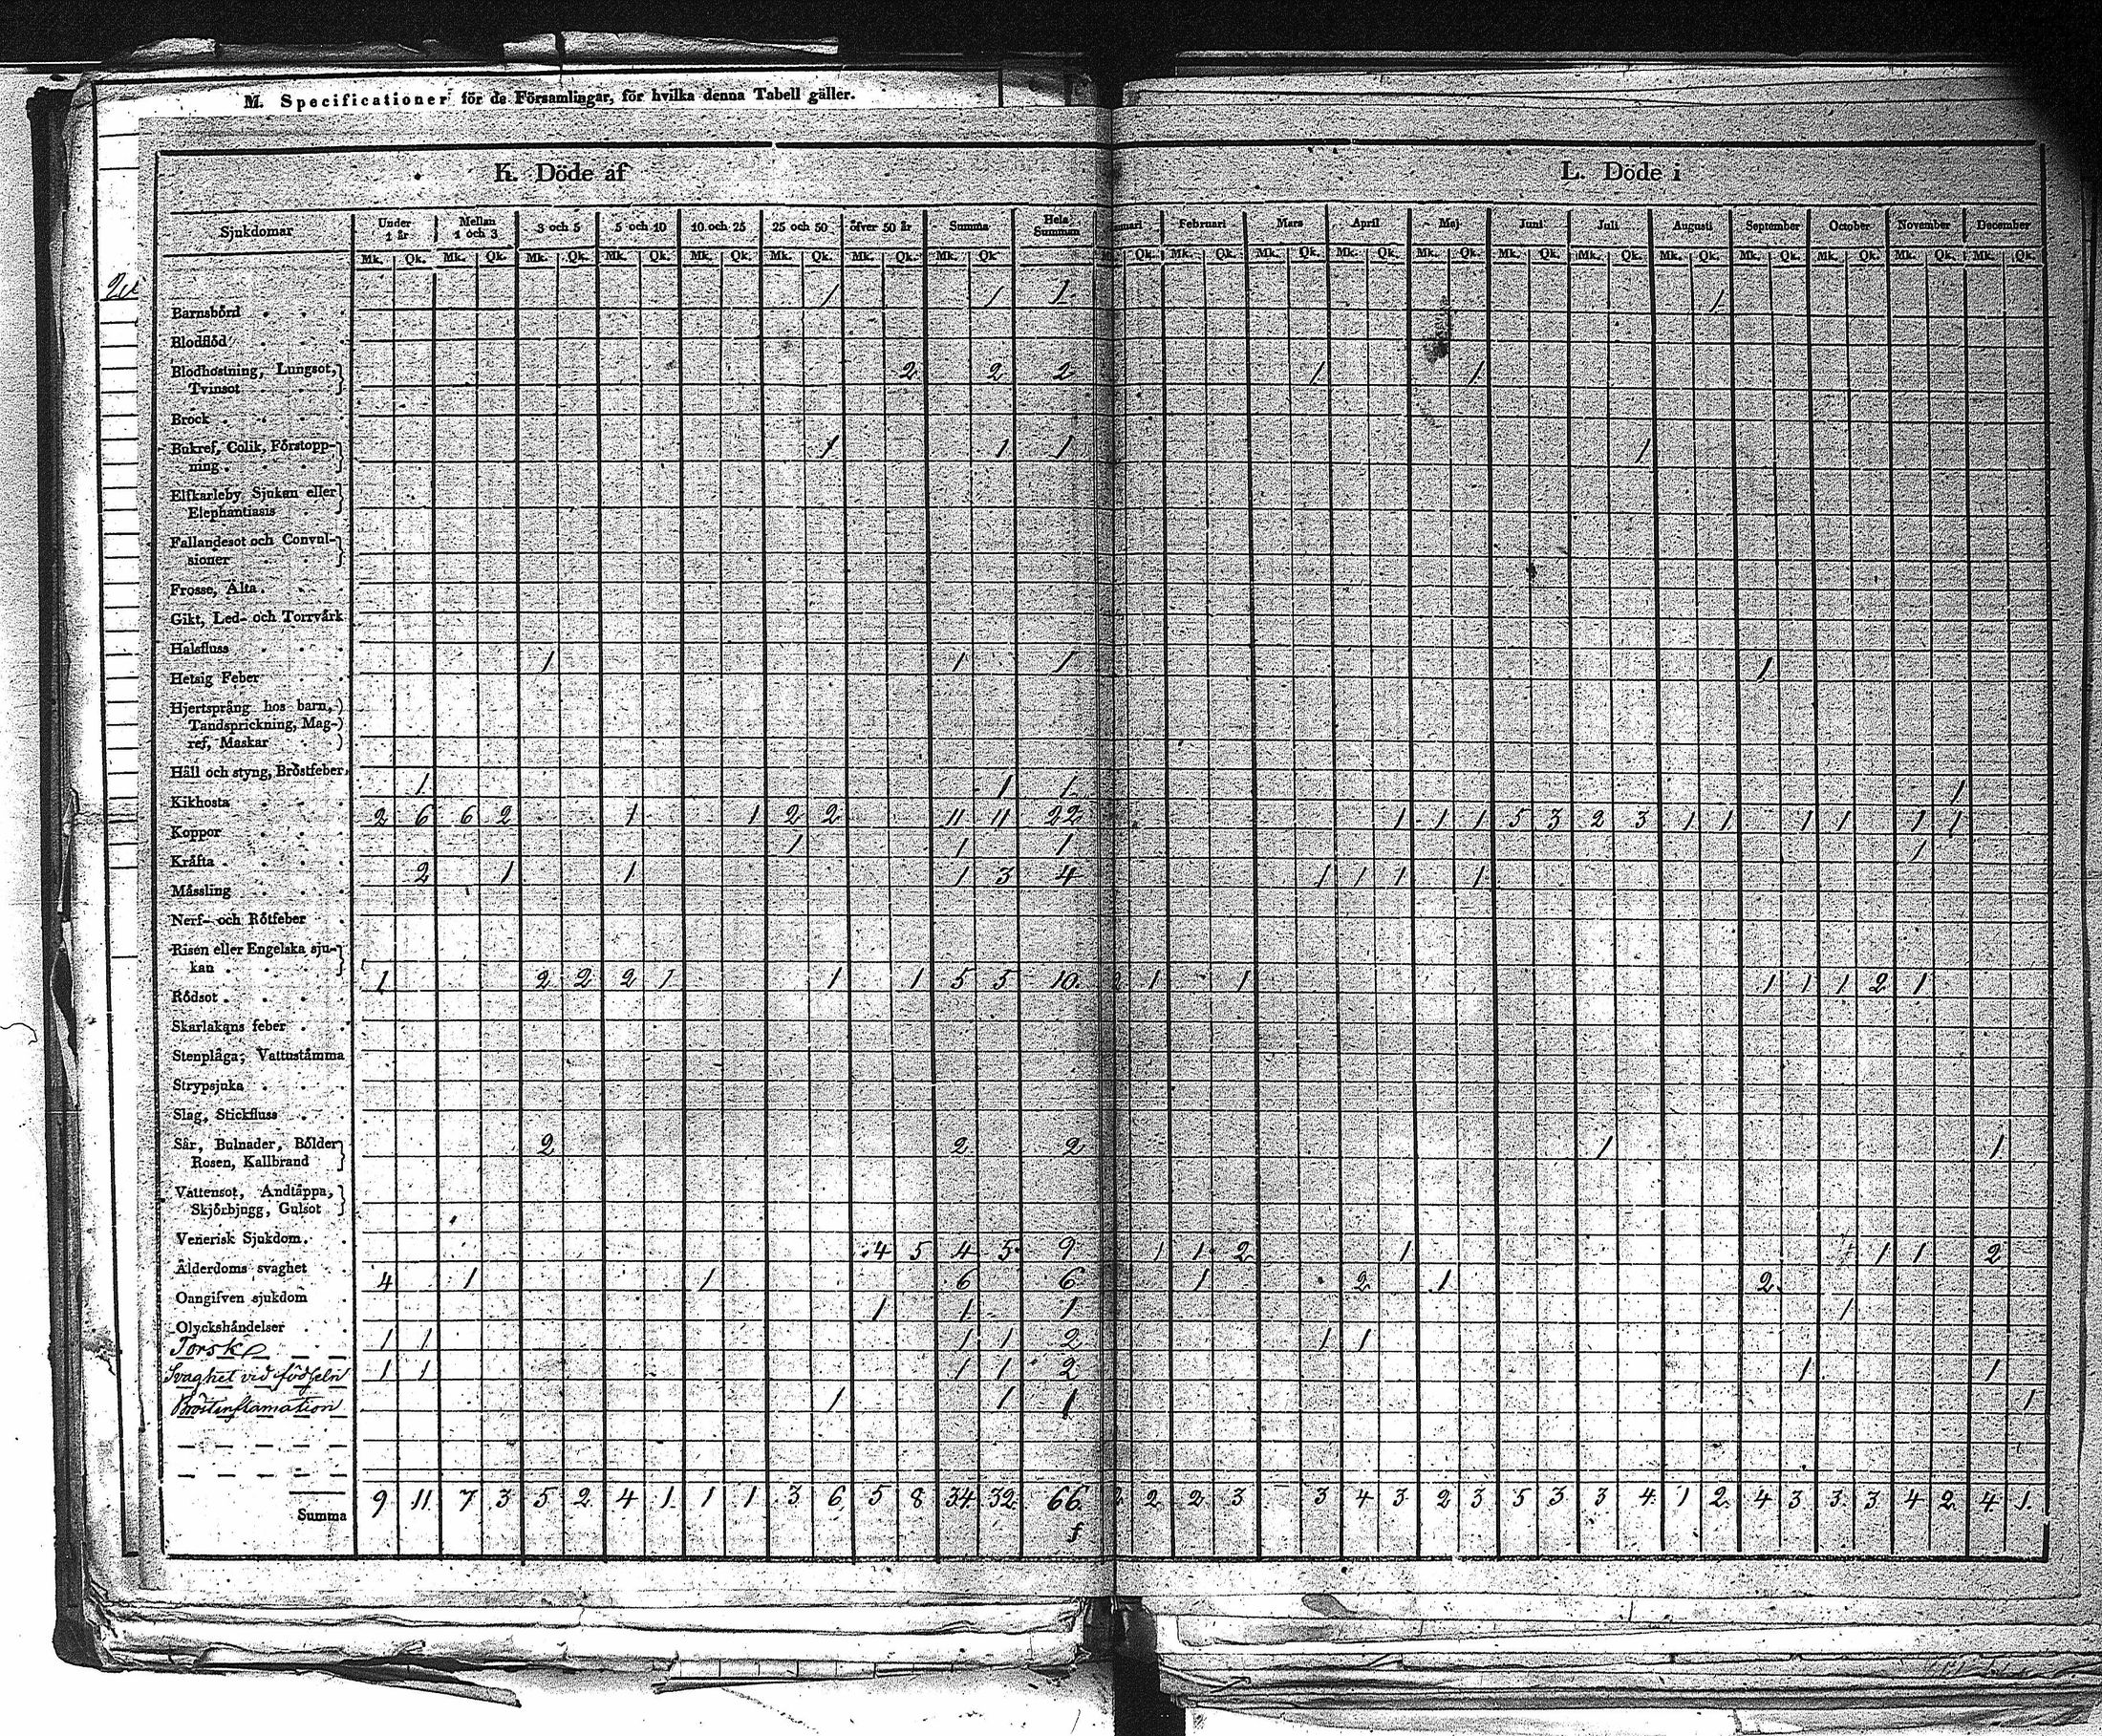 M. Specificationer för de Församlingar, för hvilka denna Tabell gäller.
K. Döde af L. Döde i
Sjukdomar Under 1 år Mellan 1 och 3 3 och 5 5 och 10 10 och 25 25 och 50 öfver 50 år Summa Hela Summan Februari Mars April Maj Juni Juli Augusti September October November December
Mk. Qk. Mk. Qk. Mk. Qk. Mk. Qk. Mk. Qk. Mk. Qk. Mk. Qk. Mk. Qk. Qk. Mk. Qk. Mk. Qk. Mk. Qk. Mk. Qk. Mk. Qk. Mk. Qk. Mk. Qk. Mk. Qk. Mk. Qk. Mk. Qk. Mk. Qk.
Barnsbörd 1 1 1 1
Blodflöd
Blodhostning, Lungsot,
Tvinsot 2 2 2 1 1
Bröck
Bukref, Colik, Förstopp-
ning 1 1 1 1
Elfkarleby Sjukan eller
Elephantiasis
Fallandesot och Convul-
sioner
Frosse, Älta
Gikt, Led- och Torrvärk
Halsfluss
Hetsig Feber 1 1 1 1
Hjertsprång hos barn,
Tandsprickning, Mag-
ref, Maskar
Håll och styng, Bröstfeber
Kikhosta 1 1 1 1
Koppor 2 6 6 2 1 1 2 2 11 11 22 1 1 1 5 3 2 3 1 1 1 1 1 1
Kräfta 1 1 1 1
Mässling 2 1 1 1 3 4 1 1 1 1
Nerf- och Rötfeber
Risen eller Engelska sju-
kan
Rödsot 1 2 2 2 1 1 1 5 5 10 2 1 1 1 1 1 2 1
Skarlakans feber
Stenplåga; Vattustämma
Strypsjuka
Slag, Stickfluss
Sår, Bulnader, Bölder
Rosen, Kallbrand 2 2 2 1 1
Vattensot, Andtäppa,
Skjörbjugg, Gulsot
Venerisk Sjukdom
Ålderdoms svaghet 4 5 4 5 9 1 1 2 1 1 1 1 2
Oangifven sjukdom 4 1 1 6 6 1 2 1 2
Olyckshändelser 1 1 1 1
Torsk 1 1 1 1 2 1 1
Svaghet vid födseln 1 1 1 1 2 1 1
Bröstinflamation 1 1 1 1
Summa 9 11 7 3 5 2 4 1 1 1 3 6 5 8 34 32 66 2 2 2 3 3 4 3 2 3 5 3 3 4 1 2 4 3 3 3 4 2 4 1